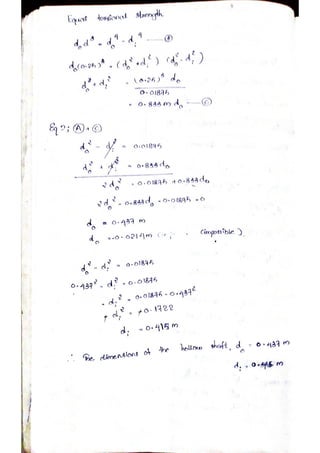 Equal torsional strength
d₀d³ = d₀⁴ - dᵢ⁴ — Ⓑ
d₀(0.25)³ = (d₀² + dᵢ²) (d₀² - dᵢ²)
d₀² + dᵢ² = (0.25)³ d₀
0.01875
= 0.833 m d₀ — Ⓒ
Eq ?: Ⓐ + Ⓒ
d₀² - dᵢ² = 0.01875
d₀² + dᵢ² = 0.833d₀
2d₀² = 0.01875 + 0.833d₀
2d₀² - 0.833d₀ - 0.01875 = 0
d₀ = 0.437 m
d₀ = -0.0214m (impossible)
d₀² - dᵢ² = 0.01875
0.437² - dᵢ² = 0.01875
- dᵢ² = 0.01875 - 0.437²
+ dᵢ² = +0.1722
dᵢ = 0.415 m
∴ The dimentions of the hollow shaft, d₀ = 0.437 m
dᵢ = 0.415 m